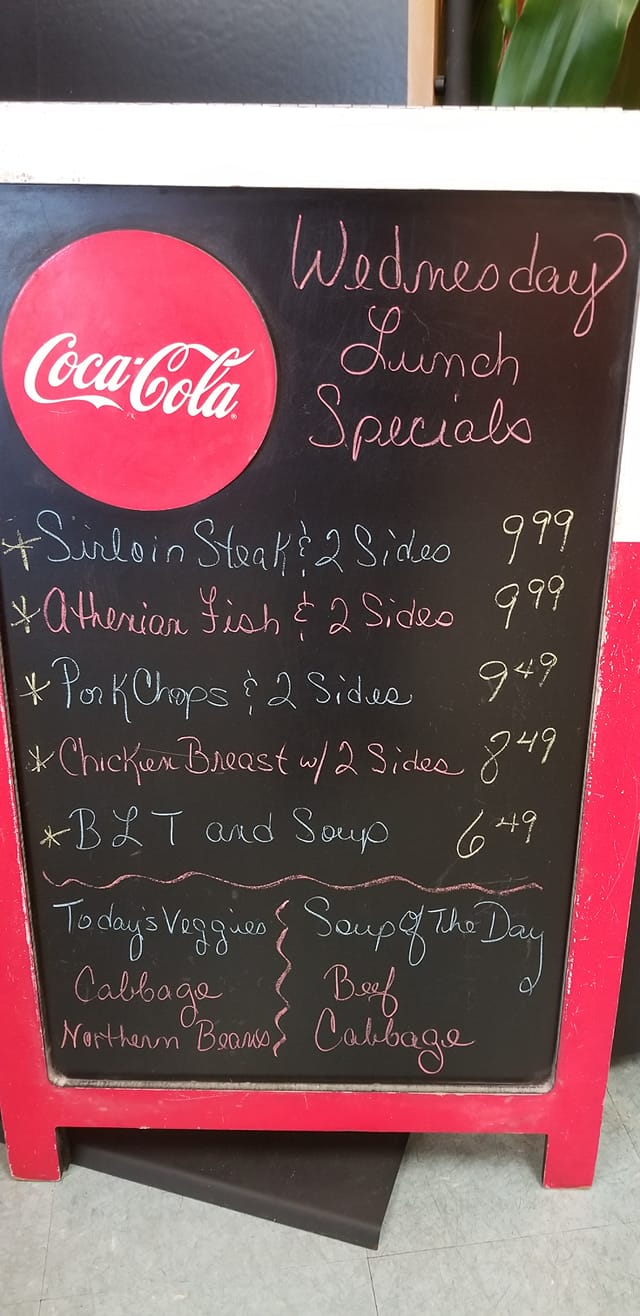 Coca-Cola
Wednesday
Lunch
Specials
* Sirloin Steak & 2 Sides 9.99
* Athenian Fish & 2 Sides 9.99
* Pork Chops & 2 Sides 9.49
* Chicken Breast w/ 2 Sides 8.49
* BLT and Soup 6.49
Today's Veggies
Cabbage
Northern Beans
Soup Of The Day
Beef
Cabbage